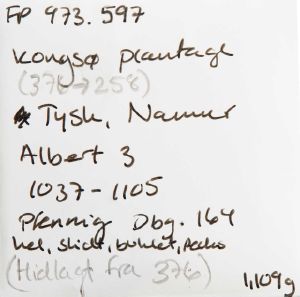 FP 973.597
Kongsø plantage
(376 → 258)
Tysk, Namur
Albert 3
1037 - 1105
Pfennig Dbg. 164
hel, slidt, bulet,
(Hidlagt fra 376)
1,109 g